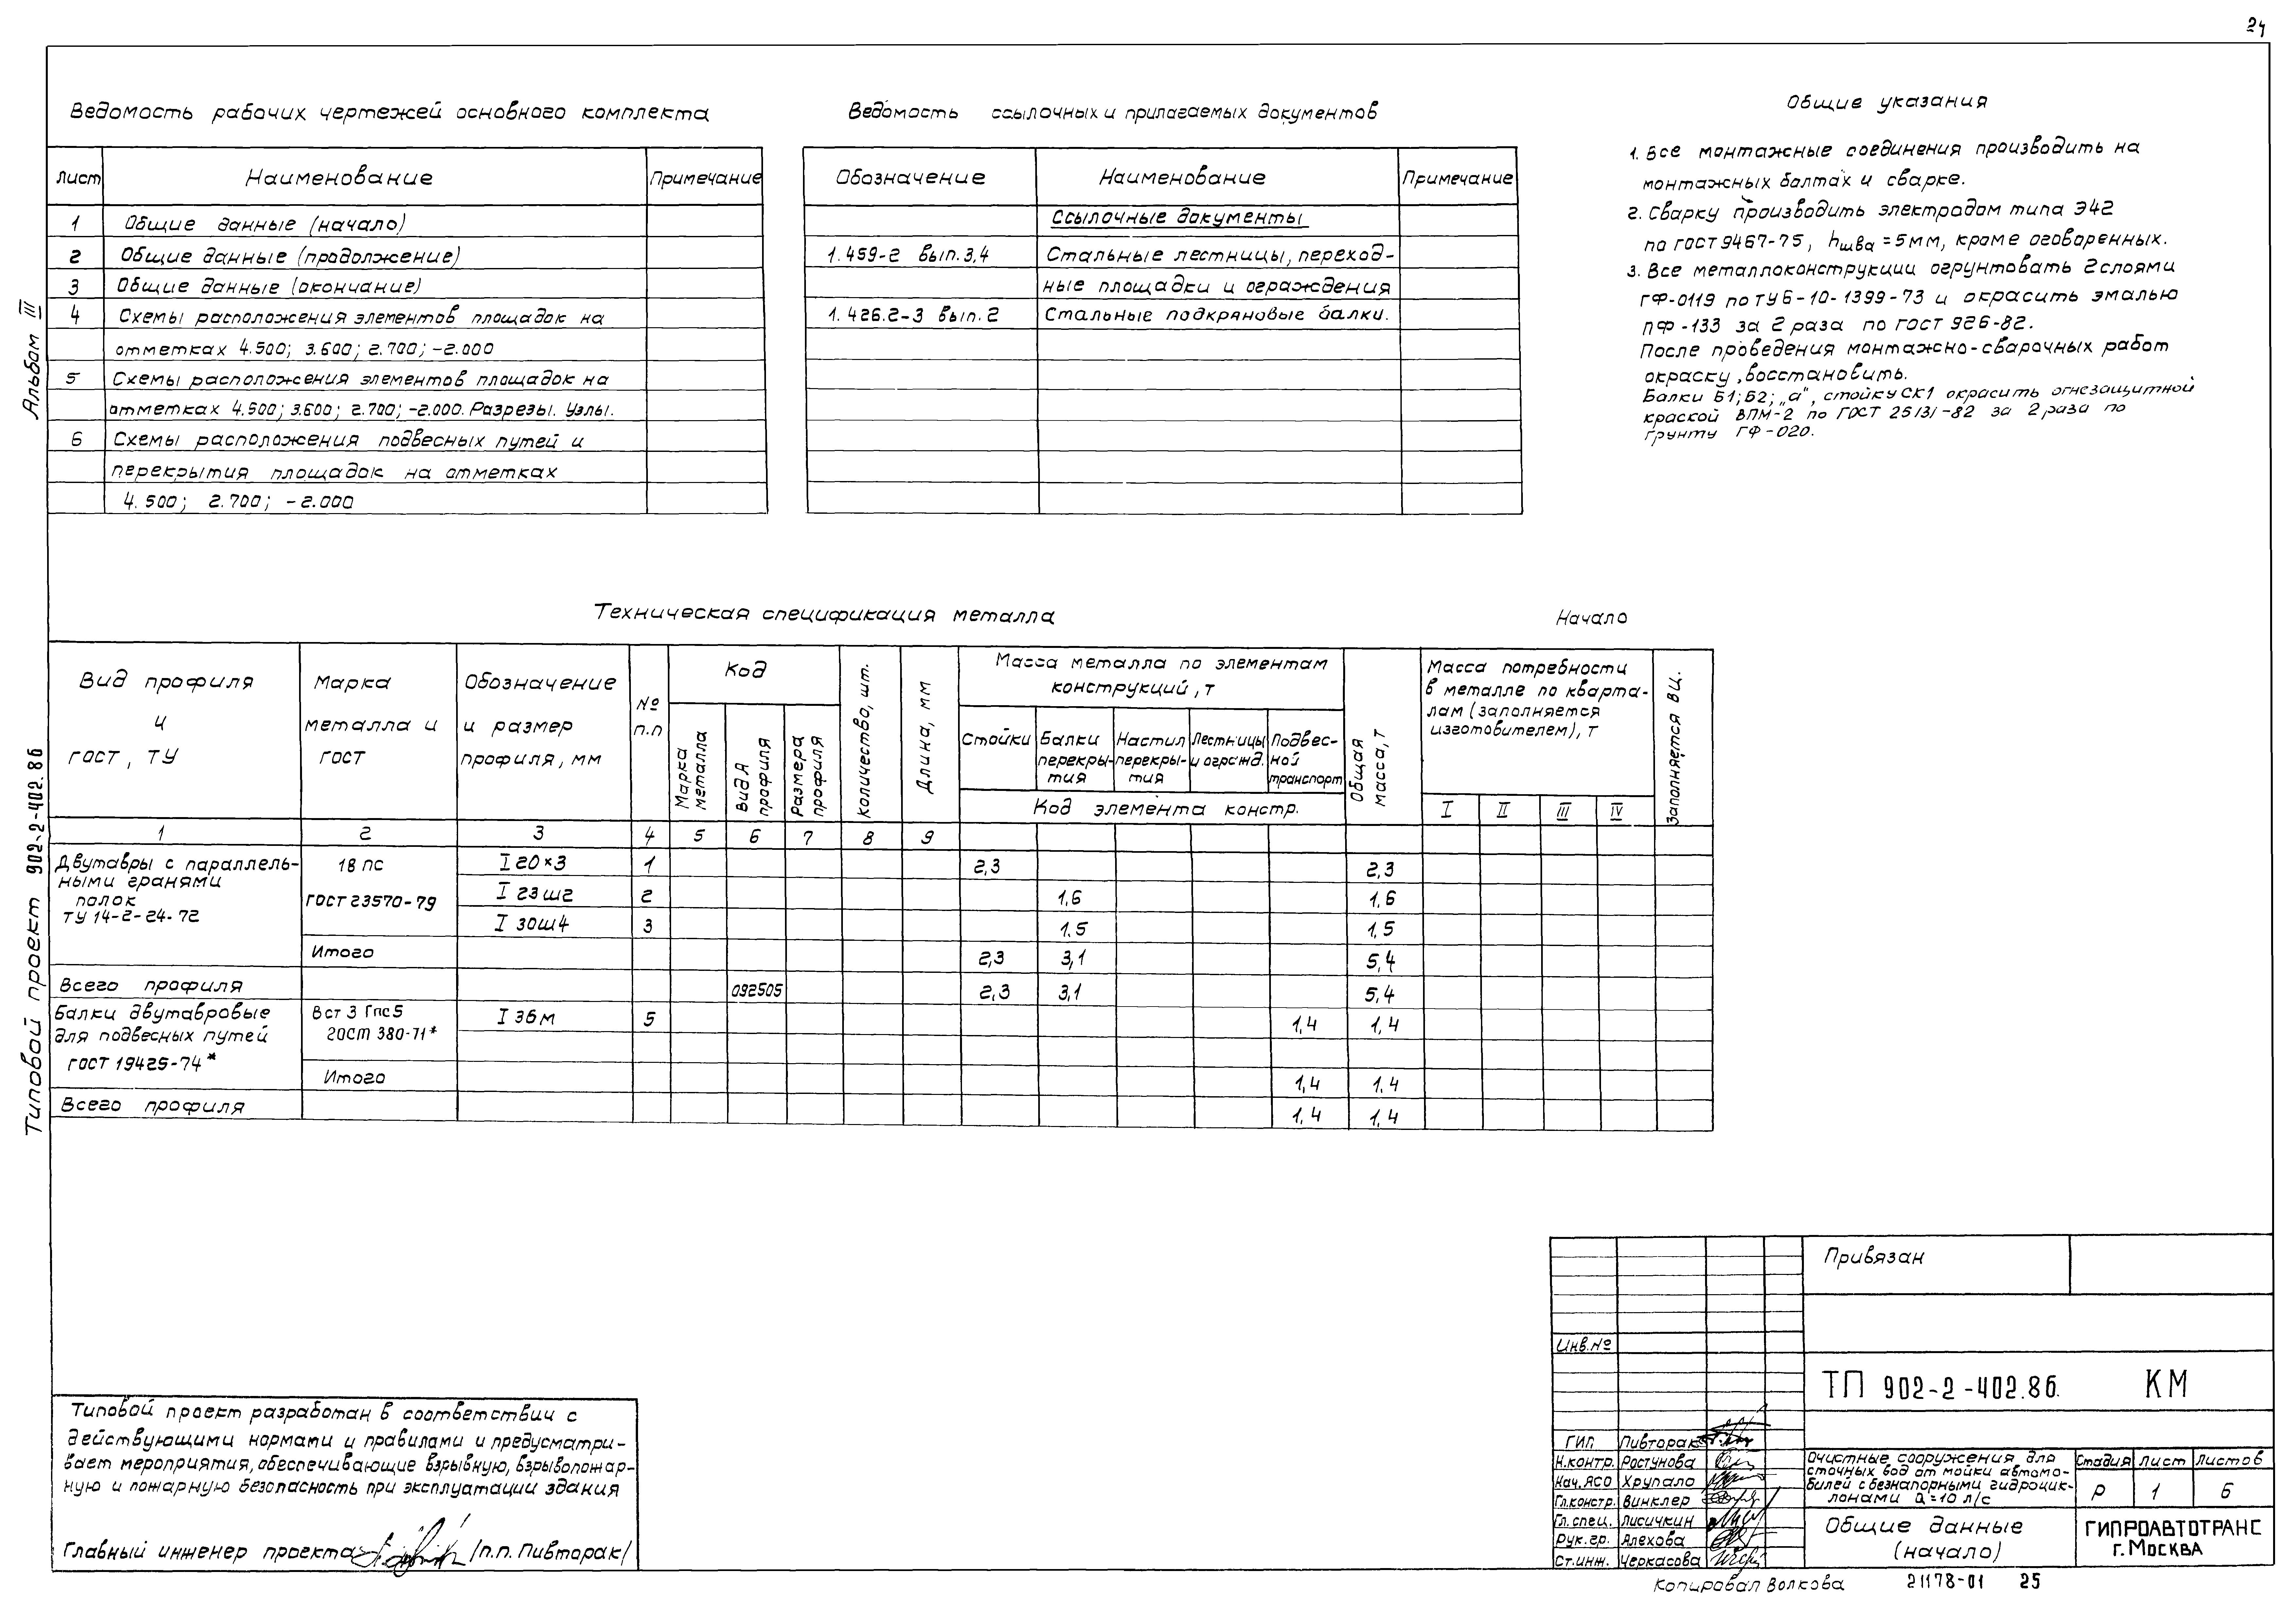 24
Альбом III
Типовой проект 902-2-402.86
Ведомость рабочих чертежей основного комплекта
Лист Наименование Примечание
1 Общие данные (начало)
2 Общие данные (продолжение)
3 Общие данные (окончание)
4 Схемы расположения элементов площадок на
отметках 4.500; 3.600; 2.700; -2.000
5 Схемы расположения элементов площадок на
отметках 4.500; 3.600; 2.700; -2.000. Разрезы. Узлы.
6 Схемы расположения подвесных путей и
перекрытия площадок на отметках
4.500; 2.700; -2.000
Ведомость ссылочных и прилагаемых документов
Обозначение Наименование Примечание
Ссылочные документы
1.459-2 вып.3,4 Стальные лестницы, переход-
ные площадки и ограждения
1.426.2-3 вып.2 Стальные подкряновые балки.
Общие указания
1. Все монтажные соединения производить на
монтажных болтах и сварке.
2. Сварку производить электродом типа Э42
по ГОСТ 9467-75, hшва = 5мм, кроме оговоренных.
3. Все металлоконструкции огрунтовать 2 слоями
ГФ-0119 по ТУ6-10-1399-73 и окрасить эмалью
ПФ-133 за 2 раза по ГОСТ 926-82.
После проведения монтажно-сварочных работ
окраску, восстановить.
Балки Б1; Б2; „а", стойку СК1 окрасить огнезащитной
краской ВПМ-2 по ГОСТ 25131-82 за 2 раза по
грунту ГФ-020.
Техническая спецификация металла Начало
Вид профиля
и
ГОСТ, ТУ
Марка
металла и
ГОСТ
Обозначение
и размер
профиля, мм
№
п.п
Код
Марка
металла
Вида
профиля
Размера
профиля
Количество, шт.
Длина, мм
Масса металла по элементам
конструкций, т
Стойки
Балки
перекры-
тия
Настил
перекры-
тия
Лестницы
и огражд.
Подвес-
ной
транспорт
Код элемента констр.
Общая
масса, т
Масса потребности
в металле по кварта-
лам (заполняется
изготовителем), т
I II III IV
Заполняется ВЦ.
1 2 3 4 5 6 7 8 9
Двутавры с параллель-
ными гранями
полок
ТУ 14-2-24-72
18 пс
ГОСТ 23570-79
I 20×3 1 2,3 2,3
I 23ш2 2 1,6 1,6
I 30ш4 3 1,5 1,5
Итого 2,3 3,1 5,4
Всего профиля 092505 2,3 3,1 5,4
Балки двутавровые
для подвесных путей
ГОСТ 19425-74*
Вст 3 Гпс 5
ГОСТ 380-71*
I 36м 5 1,4 1,4
Итого 1,4 1,4
Всего профиля 1,4 1,4
Типовой проект разработан в соответствии с
действующими нормами и правилами и предусматри-
вает мероприятия, обеспечивающие взрывную, взрывопожар-
ную и пожарную безопасность при эксплуатации здания
Главный инженер проекта /П.П. Пивторак/
Привязан
Инв.№
ТП 902-2-402.86. КМ
ГИП Пивторак
Н.контр. Растунова
Нач.АСО Хрупало
Гл.констр. Винклер
Гл.спец. Лисичкин
Рук.гр. Алехова
Ст.инж. Черкасова
Очистные сооружения для
сточных вод от мойки автомо-
билей с безнапорными гидроцик-
лонами Q=10 л/с
Стадия Лист Листов
Р 1 6
Общие данные
(начало)
ГИПРОАВТОТРАНС
г.Москва
Копировал Волкова 21178-01 25